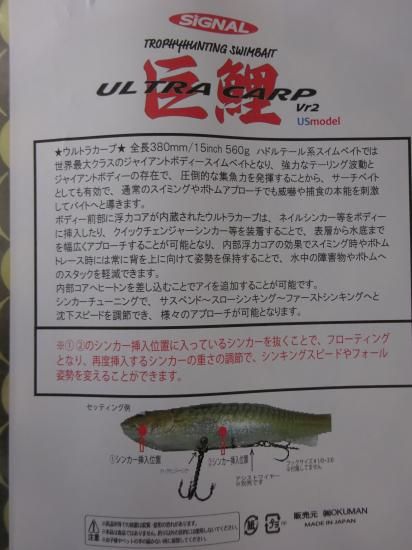 SiGNAL
TROPHYHUNTING SWIMBAIT
巨鯉
ULTRA CARP
Vr2
USmodel
★ウルトラカープ★ 全長380mm/15inch 560g ハドルテール系スイムベイトでは
世界最大クラスのジャイアントボディースイムベイトとなり、強力なテーリング波動と
ジャイアントボディーの存在で、圧倒的な集魚力を発揮することから、サーチベイト
としても有効で、通常のスイミングやボトムアプローチでも威嚇や捕食の本能を刺激
してバイトへと導きます。
ボディー前部に浮力コアが内蔵されたウルトラカープは、ネイルシンカー等をボディー
に挿入したり、クイックチェンジャーシンカー等を装着することで、表層から水底まで
を幅広くアプローチすることが可能となり、内部浮力コアの効果でスイミング時やボトム
トレース時には常に背を上に向けて姿勢を保持することで、水中の障害物やボトムへ
のスタックを軽減できます。
内部コアへヒートンを差し込むことでアイを追加することが可能です。
シンカーチューニングで、サスペンド～スローシンキング～ファーストシンキングへと
沈下スピードを調節でき、様々のアプローチが可能となります。
※①②のシンカー挿入位置に入っているシンカーを抜くことで、フローティング
となり、再度挿入するシンカーの重さの調節で、シンキングスピードやフォール
姿勢を変えることができます。
セッティング例
①シンカー挿入位置
②シンカー挿入位置
アシストワイヤー
※別売です
フックサイズ#1/0-3/0
※付属してません
注意
販売元 ㈱OKUMAN
MADE IN JAPAN